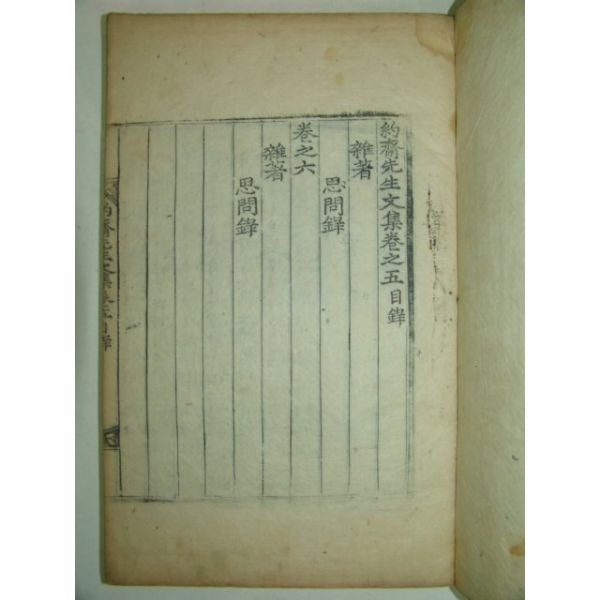 約齋先生文集卷之五目錄
雜著
思問錄
卷之六
雜著
思問錄
約齋先生文集卷五目錄